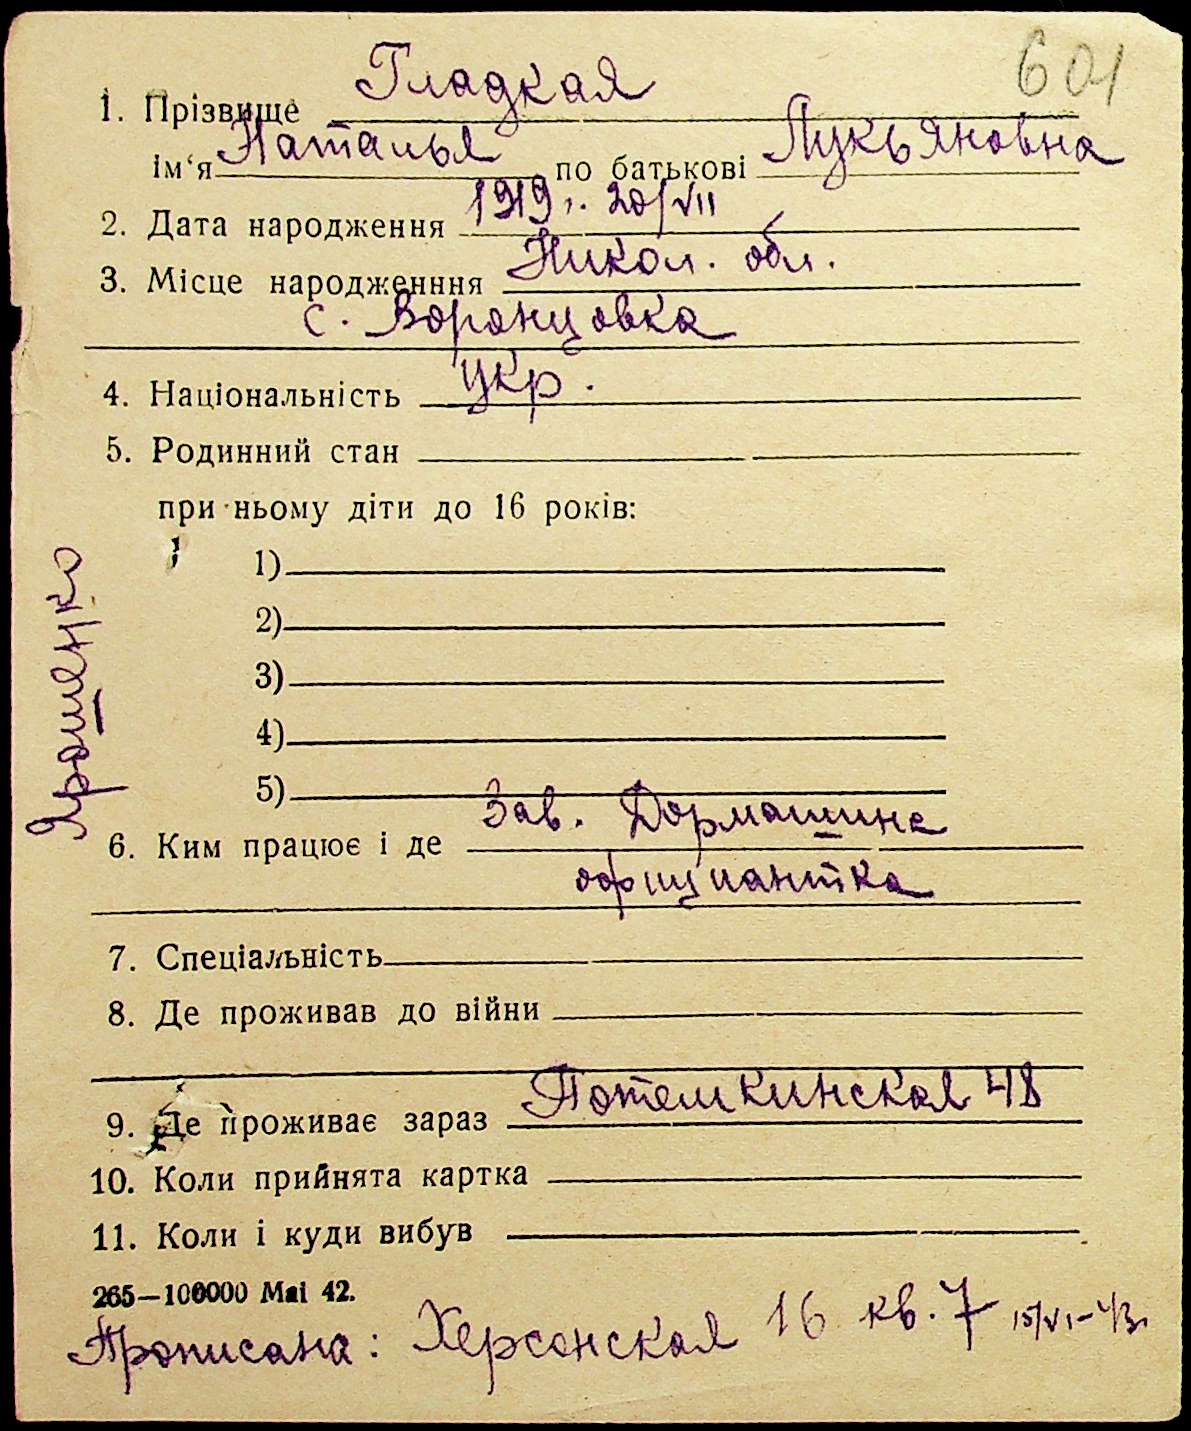 601
1. Прізвище Гладкая
ім‘я Наталья по батькові Лукьяновна
2. Дата народження 1919 г. 20/VII
3. Місце народженння Никол. обл.
с. Воронцовка
4. Національність укр.
5. Родинний стан
при ньому діти до 16 років:
1)
2)
3)
4)
5)
Ярошенко
6. Ким працює і де Зав. Дормашине
официантка
7. Спеціальність
8. Де проживав до війни
9. Де проживає зараз Потемкинская 48
10. Коли прийнята картка
11. Коли і куди вибув
265—100000 Mai 42.
Прописана: Херсонская 16 кв. 7 15/VI-43